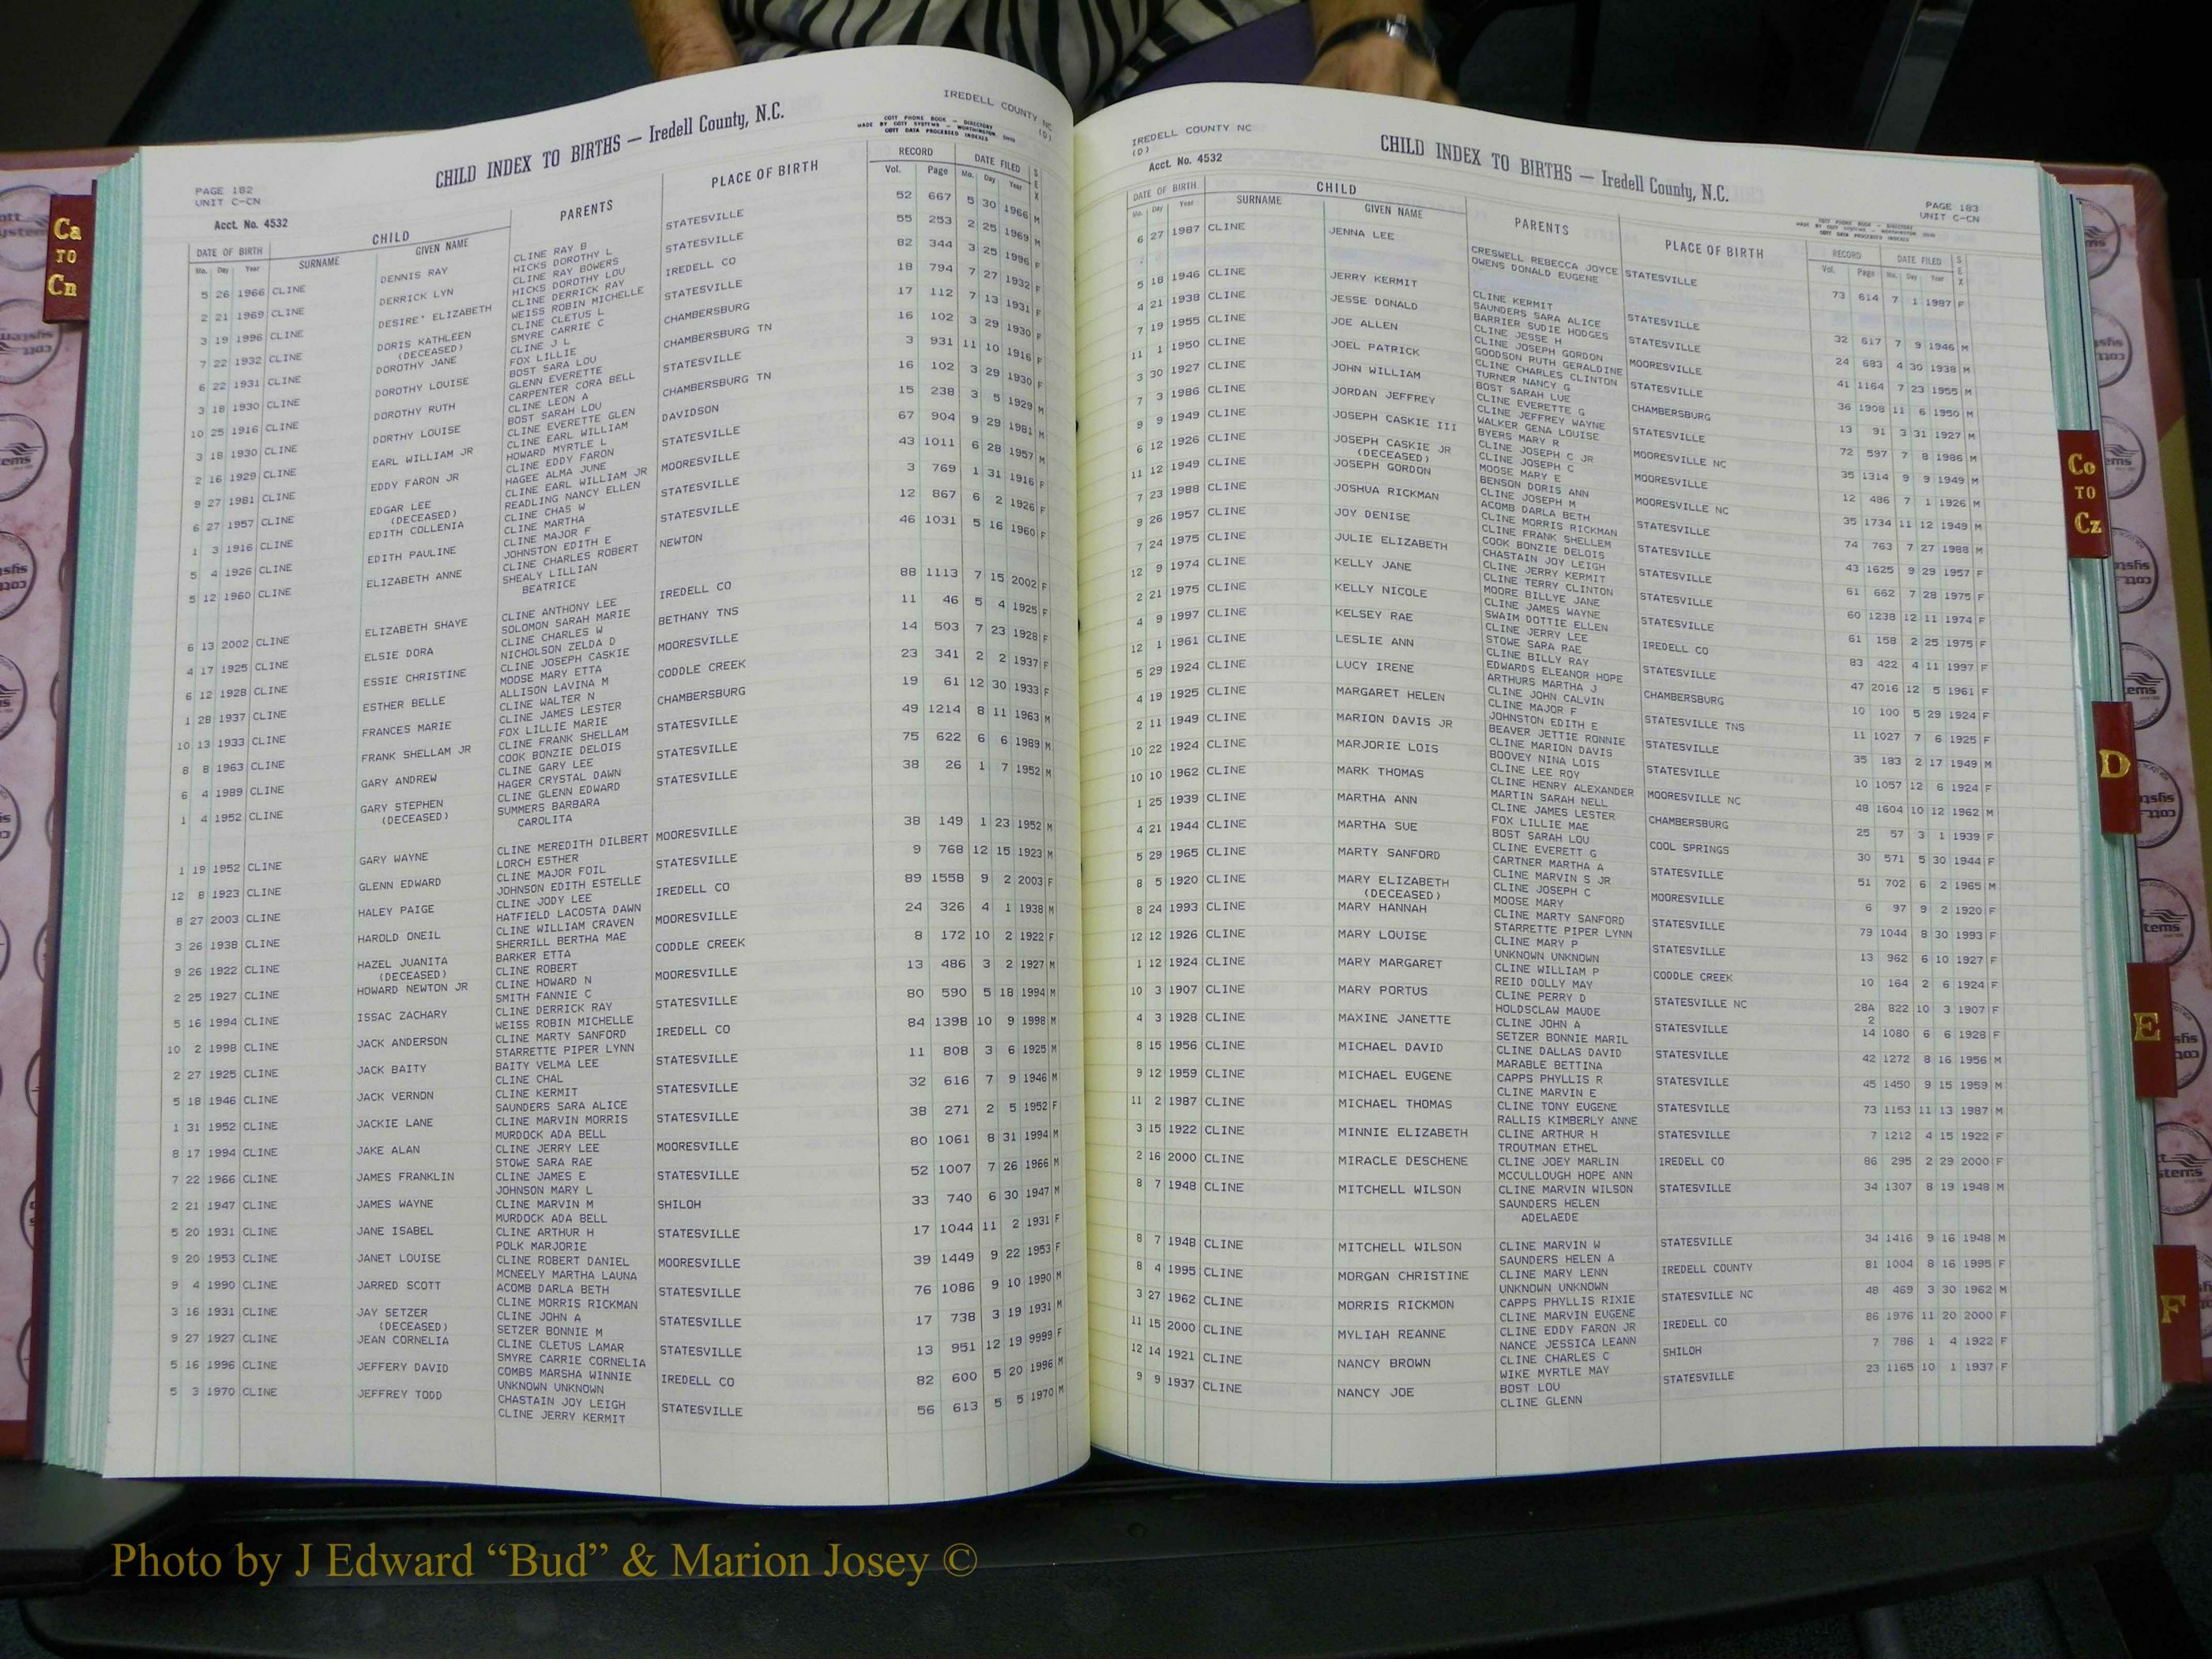 IREDELL COUNTY NC
(D)
COTT PHONE BOOK — DIRECTORY
MADE BY COTT SYSTEMS — WORTHINGTON, OHIO
COTT DATA PROCESSED INDEXES
CHILD INDEX TO BIRTHS — Iredell County, N.C.
PAGE 182
UNIT C-CN
Acct. No. 4532
DATE OF BIRTH CHILD PARENTS PLACE OF BIRTH RECORD DATE FILED SEX
Mo. Day Year SURNAME GIVEN NAME Vol. Page Mo. Day Year
5 26 1966 CLINE DENNIS RAY CLINE RAY B STATESVILLE 52 667 5 30 1966 M
HICKS DOROTHY L
2 21 1969 CLINE DERRICK LYN CLINE RAY BOWERS STATESVILLE 55 253 2 25 1969 M
HICKS DOROTHY LOU
3 19 1996 CLINE DESIRE' ELIZABETH CLINE DERRICK RAY IREDELL CO 82 344 3 25 1996 F
WEISS ROBIN MICHELLE
7 22 1932 CLINE DORIS KATHLEEN CLINE CLETUS L STATESVILLE 18 794 7 27 1932 F
(DECEASED) SMYRE CARRIE C
6 22 1931 CLINE DOROTHY JANE CLINE J L CHAMBERSBURG 17 112 7 13 1931 F
FOX LILLIE
3 18 1930 CLINE DOROTHY LOUISE BOST SARA LOU CHAMBERSBURG TN 16 102 3 29 1930 F
GLENN EVERETTE
10 25 1916 CLINE DOROTHY RUTH CARPENTER CORA BELL STATESVILLE 3 931 11 10 1916 F
CLINE LEON A
3 18 1930 CLINE DORTHY LOUISE BOST SARAH LOU CHAMBERSBURG TN 16 102 3 29 1930 F
CLINE EVERETTE GLEN
2 16 1929 CLINE EARL WILLIAM JR CLINE EARL WILLIAM DAVIDSON 15 238 3 5 1929 M
HOWARD MYRTLE L
9 27 1981 CLINE EDDY FARON JR CLINE EDDY FARON STATESVILLE 67 904 9 29 1981 M
HAGEE ALMA JUNE
6 27 1957 CLINE EDGAR LEE CLINE EARL WILLIAM JR MOORESVILLE 43 1011 6 28 1957 M
(DECEASED) READLING NANCY ELLEN
1 3 1916 CLINE EDITH COLLENIA CLINE CHAS W STATESVILLE 3 769 1 31 1916 F
CLINE MARTHA
5 4 1926 CLINE EDITH PAULINE CLINE MAJOR F STATESVILLE 12 867 6 2 1926 F
JOHNSTON EDITH E
5 12 1960 CLINE ELIZABETH ANNE CLINE CHARLES ROBERT NEWTON 46 1031 5 16 1960 F
SHEALY LILLIAN
BEATRICE
6 13 2002 CLINE ELIZABETH SHAYE CLINE ANTHONY LEE IREDELL CO 88 1113 7 15 2002 F
SOLOMON SARAH MARIE
4 17 1925 CLINE ELSIE DORA CLINE CHARLES W BETHANY TNS 11 46 5 4 1925 F
NICHOLSON ZELDA D
6 12 1928 CLINE ESSIE CHRISTINE CLINE JOSEPH CASKIE MOORESVILLE 14 503 7 23 1928 F
MOOSE MARY ETTA
1 28 1937 CLINE ESTHER BELLE ALLISON LAVINA M CODDLE CREEK 23 341 2 2 1937 F
CLINE WALTER N
10 13 1933 CLINE FRANCES MARIE CLINE JAMES LESTER CHAMBERSBURG 19 61 12 30 1933 F
FOX LILLIE MARIE
8 8 1963 CLINE FRANK SHELLAM JR CLINE FRANK SHELLAM STATESVILLE 49 1214 8 11 1963 M
COOK BONZIE DELOIS
6 4 1989 CLINE GARY ANDREW CLINE GARY LEE STATESVILLE 75 622 6 6 1989 M
HAGER CRYSTAL DAWN
1 4 1952 CLINE GARY STEPHEN CLINE GLENN EDWARD STATESVILLE 38 26 1 7 1952 M
(DECEASED) SUMMERS BARBARA
CAROLITA
1 19 1952 CLINE GARY WAYNE CLINE MEREDITH DILBERT MOORESVILLE 38 149 1 23 1952 M
LORCH ESTHER
12 8 1923 CLINE GLENN EDWARD CLINE MAJOR FOIL STATESVILLE 9 768 12 15 1923 M
JOHNSON EDITH ESTELLE
8 27 2003 CLINE HALEY PAIGE CLINE JODY LEE IREDELL CO 89 1558 9 2 2003 F
HATFIELD LACOSTA DAWN
3 26 1938 CLINE HAROLD ONEIL CLINE WILLIAM CRAVEN MOORESVILLE 24 326 4 1 1938 M
SHERRILL BERTHA MAE
9 26 1922 CLINE HAZEL JUANITA BARKER ETTA CODDLE CREEK 8 172 10 2 1922 F
(DECEASED) CLINE ROBERT
2 25 1927 CLINE HOWARD NEWTON JR CLINE HOWARD N MOORESVILLE 13 486 3 2 1927 M
SMITH FANNIE C
5 16 1994 CLINE ISSAC ZACHARY CLINE DERRICK RAY STATESVILLE 80 590 5 18 1994 M
WEISS ROBIN MICHELLE
10 2 1998 CLINE JACK ANDERSON CLINE MARTY SANFORD IREDELL CO 84 1398 10 9 1998 M
STARRETTE PIPER LYNN
2 27 1925 CLINE JACK BAITY BAITY VELMA LEE STATESVILLE 11 808 3 6 1925 M
CLINE CHAL
5 18 1946 CLINE JACK VERNON CLINE KERMIT STATESVILLE 32 616 7 9 1946 M
SAUNDERS SARA ALICE
1 31 1952 CLINE JACKIE LANE CLINE MARVIN MORRIS STATESVILLE 38 271 2 5 1952 F
MURDOCK ADA BELL
8 17 1994 CLINE JAKE ALAN CLINE JERRY LEE MOORESVILLE 80 1061 8 31 1994 M
STOWE SARA RAE
7 22 1966 CLINE JAMES FRANKLIN CLINE JAMES E STATESVILLE 52 1007 7 26 1966 M
JOHNSON MARY L
2 21 1947 CLINE JAMES WAYNE CLINE MARVIN M SHILOH 33 740 6 30 1947 M
MURDOCK ADA BELL
5 20 1931 CLINE JANE ISABEL CLINE ARTHUR H STATESVILLE 17 1044 11 2 1931 F
POLK MARJORIE
9 20 1953 CLINE JANET LOUISE CLINE ROBERT DANIEL MOORESVILLE 39 1449 9 22 1953 F
MCNEELY MARTHA LAUNA
9 4 1990 CLINE JARRED SCOTT ACOMB DARLA BETH STATESVILLE 76 1086 9 10 1990 M
CLINE MORRIS RICKMAN
3 16 1931 CLINE JAY SETZER CLINE JOHN A STATESVILLE 17 738 3 19 1931 M
(DECEASED) SETZER BONNIE M
9 27 1927 CLINE JEAN CORNELIA CLINE CLETUS LAMAR STATESVILLE 13 951 12 19 9999 F
SMYRE CARRIE CORNELIA
5 16 1996 CLINE JEFFERY DAVID COMBS MARSHA WINNIE IREDELL CO 82 600 5 20 1996 M
UNKNOWN UNKNOWN
5 3 1970 CLINE JEFFREY TODD CHASTAIN JOY LEIGH STATESVILLE 56 613 5 5 1970 M
CLINE JERRY KERMIT
Ca
TO
Cn
IREDELL COUNTY NC
(D)
Acct. No. 4532
CHILD INDEX TO BIRTHS — Iredell County, N.C.
PAGE 183
UNIT C-CN
COTT PHONE BOOK — DIRECTORY
MADE BY COTT SYSTEMS — WORTHINGTON, OHIO
COTT DATA PROCESSED INDEXES
DATE OF BIRTH CHILD PARENTS PLACE OF BIRTH RECORD DATE FILED SEX
Mo. Day Year SURNAME GIVEN NAME Vol. Page Mo. Day Year
6 27 1987 CLINE JENNA LEE CRESWELL REBECCA JOYCE STATESVILLE 73 614 7 1 1987 F
OWENS DONALD EUGENE
5 18 1946 CLINE JERRY KERMIT CLINE KERMIT STATESVILLE 32 617 7 9 1946 M
SAUNDERS SARA ALICE
4 21 1938 CLINE JESSE DONALD BARRIER SUDIE HODGES STATESVILLE 24 683 4 30 1938 M
CLINE JESSE H
7 19 1955 CLINE JOE ALLEN CLINE JOSEPH GORDON MOORESVILLE 41 1164 7 23 1955 M
GOODSON RUTH GERALDINE
11 1 1950 CLINE JOEL PATRICK CLINE CHARLES CLINTON STATESVILLE 36 1908 11 6 1950 M
TURNER NANCY G
3 30 1927 CLINE JOHN WILLIAM BOST SARAH LUE CHAMBERSBURG 13 91 3 31 1927 M
CLINE EVERETTE G
7 3 1986 CLINE JORDAN JEFFREY CLINE JEFFREY WAYNE STATESVILLE 72 597 7 8 1986 M
WALKER GENA LOUISE
9 9 1949 CLINE JOSEPH CASKIE III BYERS MARY R MOORESVILLE NC 35 1314 9 9 1949 M
CLINE JOSEPH C JR
6 12 1926 CLINE JOSEPH CASKIE JR CLINE JOSEPH C MOORESVILLE 12 486 7 1 1926 M
(DECEASED) MOOSE MARY E
11 12 1949 CLINE JOSEPH GORDON BENSON DORIS ANN MOORESVILLE NC 35 1734 11 12 1949 M
CLINE JOSEPH M
7 23 1988 CLINE JOSHUA RICKMAN ACOMB DARLA BETH STATESVILLE 74 763 7 27 1988 M
CLINE MORRIS RICKMAN
9 26 1957 CLINE JOY DENISE CLINE FRANK SHELLEM STATESVILLE 43 1625 9 29 1957 F
COOK BONZIE DELOIS
7 24 1975 CLINE JULIE ELIZABETH CHASTAIN JOY LEIGH STATESVILLE 61 662 7 28 1975 F
CLINE JERRY KERMIT
12 9 1974 CLINE KELLY JANE CLINE TERRY CLINTON STATESVILLE 60 1238 12 11 1974 F
MOORE BILLYE JANE
2 21 1975 CLINE KELLY NICOLE CLINE JAMES WAYNE STATESVILLE 61 158 2 25 1975 F
SWAIM DOTTIE ELLEN
4 9 1997 CLINE KELSEY RAE CLINE JERRY LEE IREDELL CO 83 422 4 11 1997 F
STOWE SARA RAE
12 1 1961 CLINE LESLIE ANN CLINE BILLY RAY STATESVILLE 47 2016 12 5 1961 F
EDWARDS ELEANOR HOPE
5 29 1924 CLINE LUCY IRENE ARTHURS MARTHA J CHAMBERSBURG 10 100 5 29 1924 F
CLINE JOHN CALVIN
4 19 1925 CLINE MARGARET HELEN CLINE MAJOR F STATESVILLE TNS 11 1027 7 6 1925 F
JOHNSTON EDITH E
2 11 1949 CLINE MARION DAVIS JR BEAVER JETTIE RONNIE STATESVILLE 35 183 2 17 1949 M
CLINE MARION DAVIS
10 22 1924 CLINE MARJORIE LOIS BOOVEY NINA LOIS STATESVILLE 10 1057 12 6 1924 F
CLINE LEE ROY
10 10 1962 CLINE MARK THOMAS CLINE HENRY ALEXANDER MOORESVILLE NC 48 1604 10 12 1962 M
MARTIN SARAH NELL
1 25 1939 CLINE MARTHA ANN CLINE JAMES LESTER CHAMBERSBURG 25 57 3 1 1939 F
FOX LILLIE MAE
4 21 1944 CLINE MARTHA SUE BOST SARAH LOU COOL SPRINGS 30 571 5 30 1944 F
CLINE EVERETT G
5 29 1965 CLINE MARTY SANFORD CARTNER MARTHA A STATESVILLE 51 702 6 2 1965 M
CLINE MARVIN S JR
8 5 1920 CLINE MARY ELIZABETH CLINE JOSEPH C MOORESVILLE 6 97 9 2 1920 F
(DECEASED) MOOSE MARY
8 24 1993 CLINE MARY HANNAH CLINE MARTY SANFORD STATESVILLE 79 1044 8 30 1993 F
STARRETTE PIPER LYNN
12 12 1926 CLINE MARY LOUISE CLINE MARY P STATESVILLE 13 962 6 10 1927 F
UNKNOWN UNKNOWN
1 12 1924 CLINE MARY MARGARET CLINE WILLIAM P CODDLE CREEK 10 164 2 6 1924 F
REID DOLLY MAY
10 3 1907 CLINE MARY PORTUS CLINE PERRY D STATESVILLE NC 28A 822 10 3 1907 F
HOLDSCLAW MAUDE 2
4 3 1928 CLINE MAXINE JANETTE CLINE JOHN A STATESVILLE 14 1080 6 6 1928 F
SETZER BONNIE MARIL
8 15 1956 CLINE MICHAEL DAVID CLINE DALLAS DAVID STATESVILLE 42 1272 8 16 1956 M
MARABLE BETTINA
9 12 1959 CLINE MICHAEL EUGENE CAPPS PHYLLIS R STATESVILLE 45 1450 9 15 1959 M
CLINE MARVIN E
11 2 1987 CLINE MICHAEL THOMAS CLINE TONY EUGENE STATESVILLE 73 1153 11 13 1987 M
RALLIS KIMBERLY ANNE
3 15 1922 CLINE MINNIE ELIZABETH CLINE ARTHUR H STATESVILLE 7 1212 4 15 1922 F
TROUTMAN ETHEL
2 16 2000 CLINE MIRACLE DESCHENE CLINE JOEY MARLIN IREDELL CO 86 295 2 29 2000 F
MCCULLOUGH HOPE ANN
8 7 1948 CLINE MITCHELL WILSON CLINE MARVIN WILSON STATESVILLE 34 1307 8 19 1948 M
SAUNDERS HELEN
ADELAEDE
8 7 1948 CLINE MITCHELL WILSON CLINE MARVIN W STATESVILLE 34 1416 9 16 1948 M
SAUNDERS HELEN A
8 4 1995 CLINE MORGAN CHRISTINE CLINE MARY LENN IREDELL COUNTY 81 1004 8 16 1995 F
UNKNOWN UNKNOWN
3 27 1962 CLINE MORRIS RICKMON CAPPS PHYLLIS RIXIE STATESVILLE NC 48 469 3 30 1962 M
CLINE MARVIN EUGENE
11 15 2000 CLINE MYLIAH REANNE CLINE EDDY FARON JR IREDELL CO 86 1976 11 20 2000 F
NANCE JESSICA LEANN
12 14 1921 CLINE NANCY BROWN CLINE CHARLES C SHILOH 7 786 1 4 1922 F
WIKE MYRTLE MAY
9 9 1937 CLINE NANCY JOE BOST LOU STATESVILLE 23 1165 10 1 1937 F
CLINE GLENN
Co
TO
Cz
D
E
F
Photo by J Edward “Bud” & Marion Josey ©